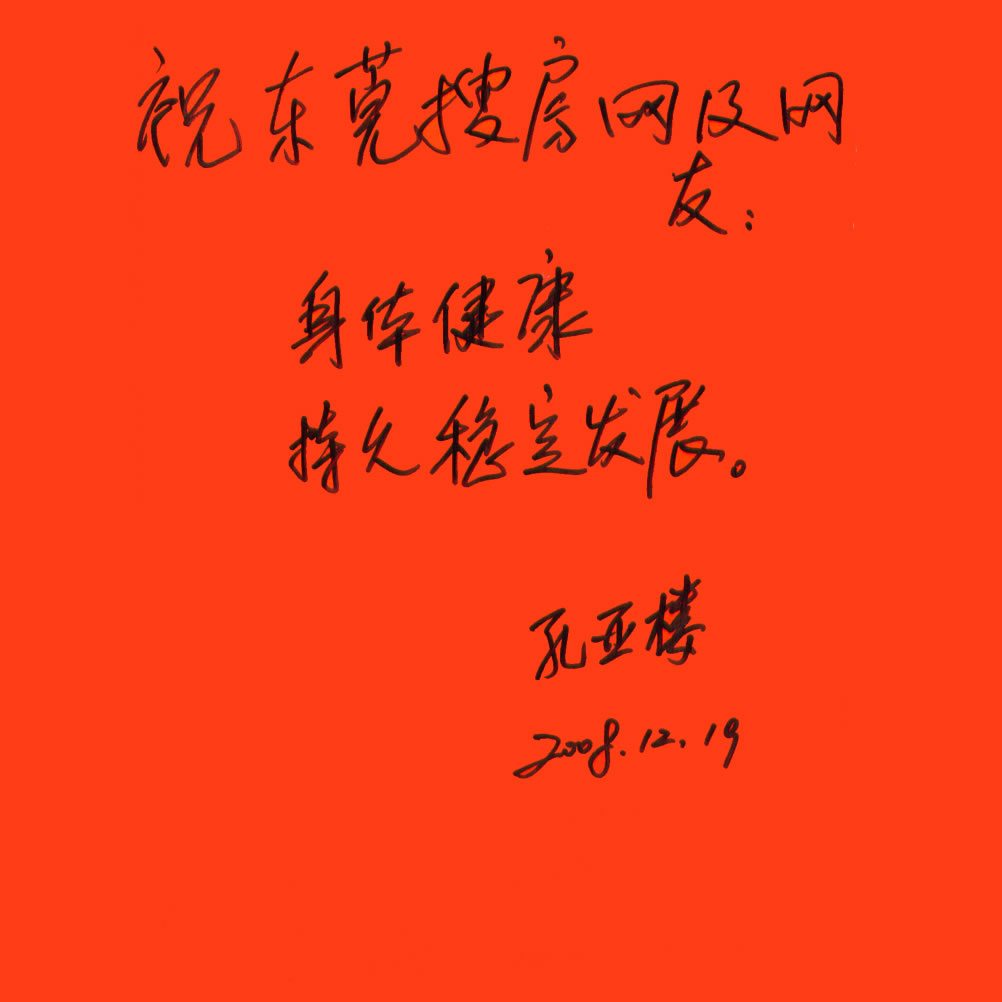 祝东莞搜房网及网
友：
身体健康
持久稳定发展。
孔亚楼
2008.12.19